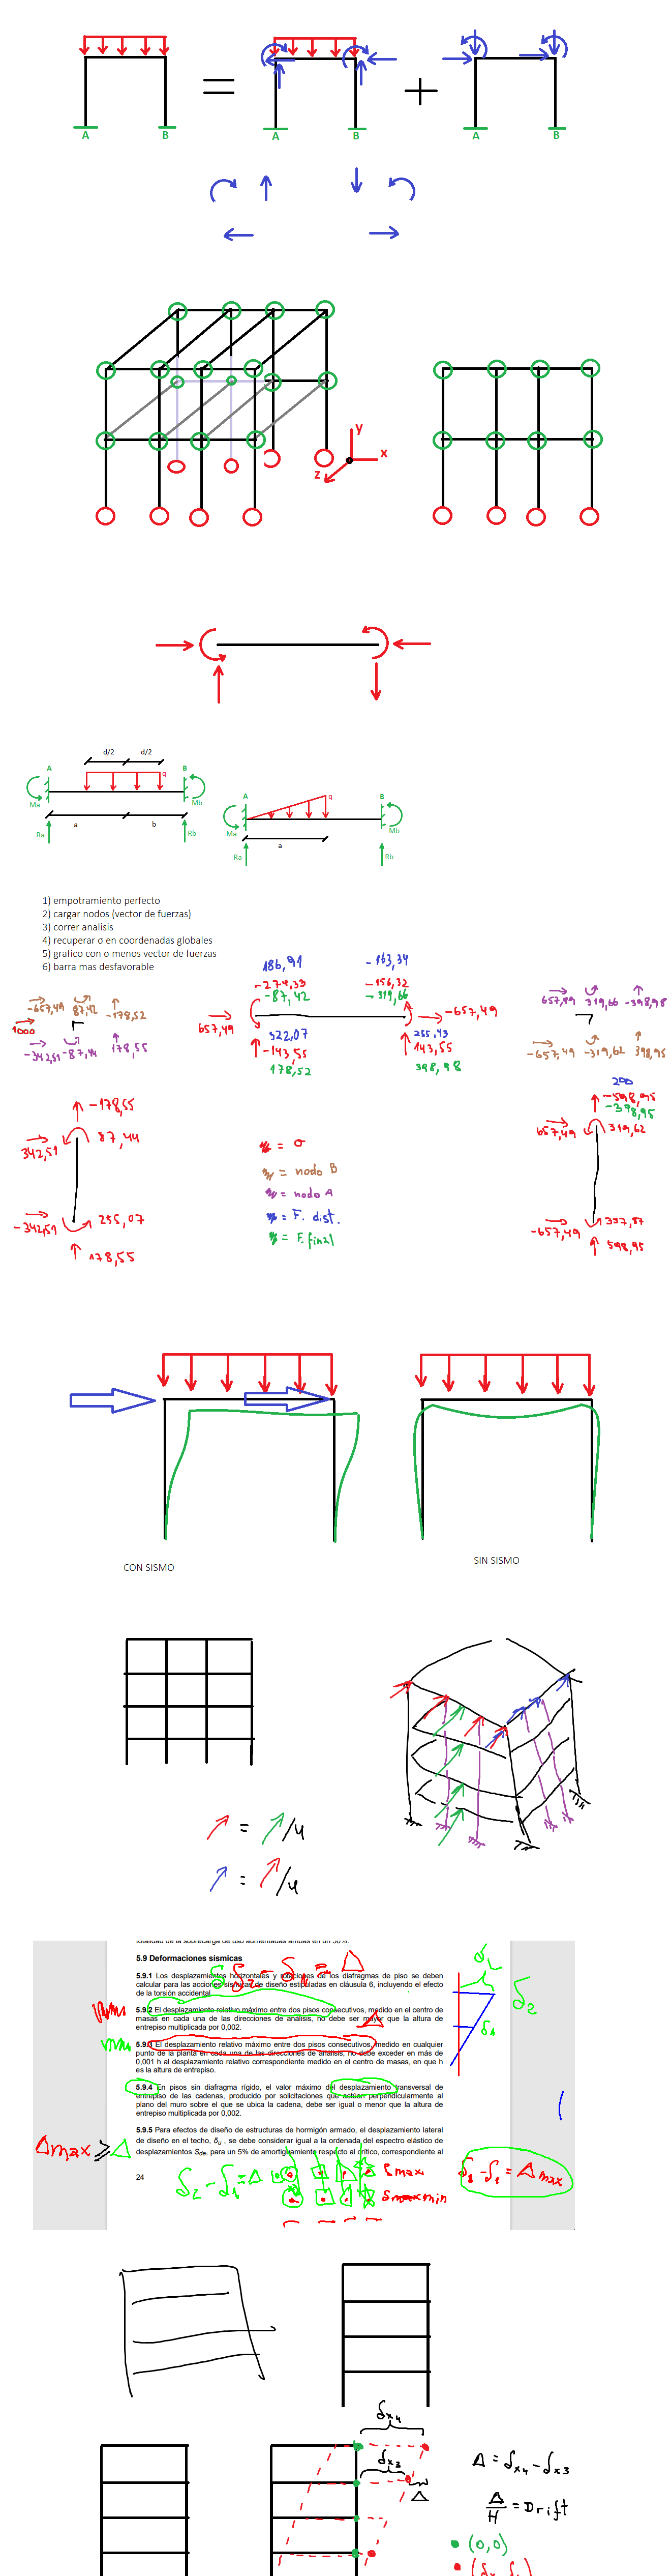 A
B
A
B
A
B
y
x
z
d/2
d/2
A
B
q
Ma
Mb
a
b
Ra
Rb
A
B
q
Ma
Mb
a
Ra
Rb
1) empotramiento perfecto
2) cargar nodos (vector de fuerzas)
3) correr analisis
4) recuperar σ en coordenadas globales
5) grafico con σ menos vector de fuerzas
6) barra mas desfavorable
186,91
-163,34
-274,33
-156,32
-87,42
-319,66
-657,49
87,42
-178,52
1000
657,49
-657,49
657,49
319,66
-398,98
-342,51
-87,44
178,55
322,07
-143,55
178,52
255,43
143,55
398,98
-657,49
-319,62
398,95
200
-178,55
-598,95
-398,95
342,51
87,44
657,49
319,62
= σ
= nodo B
= nodo A
= F. dist.
= F. final
-342,51
255,07
178,55
-657,49
337,87
598,95
CON SISMO
SIN SISMO
= /4
= /4
5.9 Deformaciones sísmicas
δ2 - δ1 = Δ
5.9.1 Los desplazamientos horizontales y rotaciones de los diafragmas de piso se deben
calcular para las acciones sísmicas de diseño estipuladas en cláusula 6, incluyendo el efecto
de la torsión accidental.
5.9.2 El desplazamiento relativo máximo entre dos pisos consecutivos, medido en el centro de
masas en cada una de las direcciones de análisis, no debe ser mayor que la altura de
entrepiso multiplicada por 0,002.
5.9.3 El desplazamiento relativo máximo entre dos pisos consecutivos, medido en cualquier
punto de la planta en cada una de las direcciones de análisis, no debe exceder en más de
0,001 h al desplazamiento relativo correspondiente medido en el centro de masas, en que h
es la altura de entrepiso.
5.9.4 En pisos sin diafragma rígido, el valor máximo del desplazamiento transversal de
entrepiso de las cadenas, producido por solicitaciones que actúen perpendicularmente al
plano del muro sobre el que se ubica la cadena, debe ser igual o menor que la altura de
entrepiso multiplicada por 0,002.
5.9.5 Para efectos de diseño de estructuras de hormigón armado, el desplazamiento lateral
de diseño en el techo, δu , se debe considerar igual a la ordenada del espectro elástico de
desplazamientos Sde, para un 5% de amortiguamiento respecto al crítico, correspondiente al
24
δ2
δ1
Δmax ≥ Δ
δ2 - δ1 = Δ
δmax
min
= Δmax
δx4
δx3
Δ
Δ = δx4 - δx3
Δ/H = Drift
(0,0)